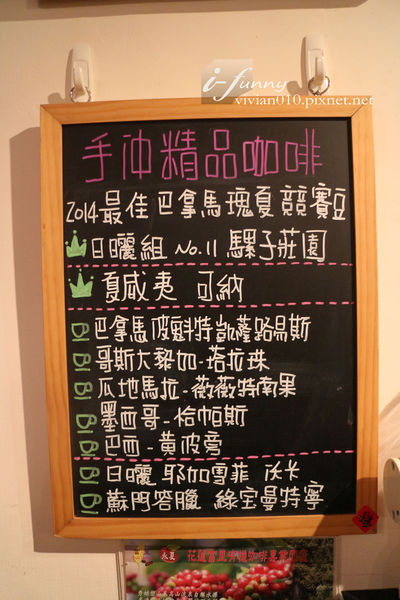 i-funny
vivian010.pixnet.net
手沖精品咖啡
2014最佳巴拿馬瑰夏競賽豆
日曬組 No.11 騾子莊園
夏威夷 可納
巴拿馬波魁特凱薩路易斯
哥斯大黎加-塔拉珠
瓜地馬拉-薇薇特南果
墨西哥-恰帕斯
巴西-黃波旁
日曬 耶加雪菲 沃卡
蘇門答臘 綠宝曼特寧